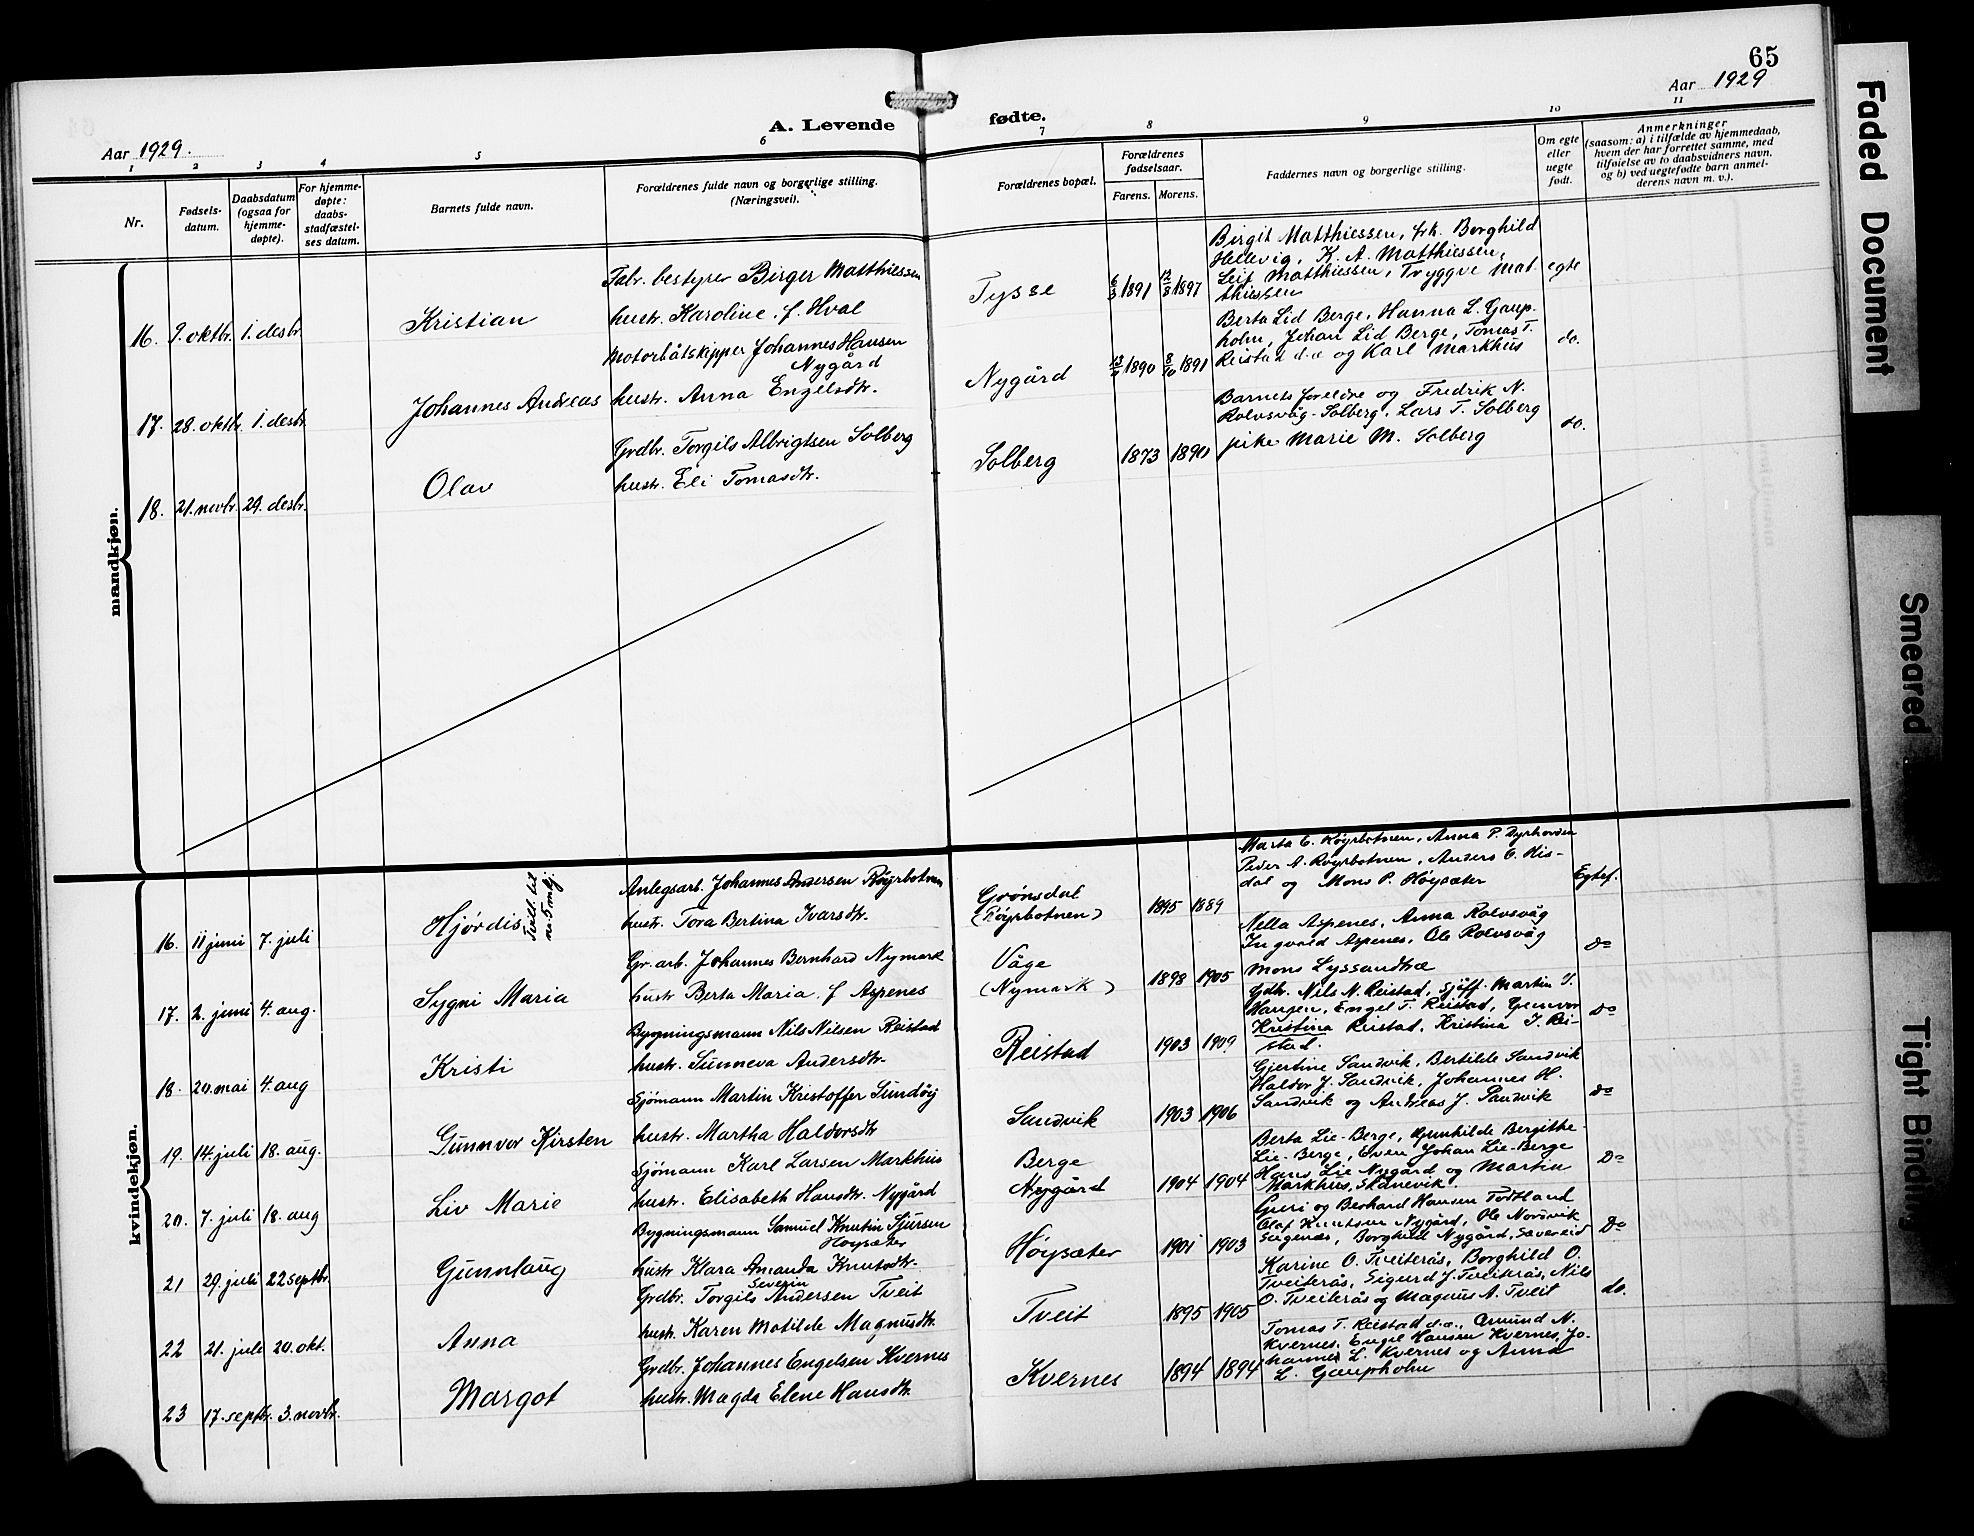 65
Aar 1929.
A. Levende fødte.
Aar 1929
1 2 3 4 5 6 7 8 9 10 11
Nr.
Fødsels-
datum.
Daabsdatum
(ogsaa for
hjemme-
døpte).
For hjemme-
døpte:
daabs-
stadfæstel-
ses datum.
Barnets fulde navn.
Forældrenes fulde navn og borgerlige stilling.
(Næringsvei).
Forældrenes bopæl.
Forældrenes
fødselsaar.
Farens. Morens.
Faddernes navn og borgerlige stilling.
Om egte
eller
uegte
født.
Anmerkninger
(saasom: a) i tilfælde av hjemmedaab,
hvem der har forrettet samme, med
tilføielse av to daabsvidners navn,
og b) ved uegtefødte barn anmel-
derens navn m. v.).
mandkjøn.
16. 9. oktbr. 1. desbr. Kristian
Fabr. bestyrer Birger Matthiessen
hustr. Karoline. f. Hval
Tysse
6/3 1891 12/8 1897
Birgit Matthiessen, frk. Borghild
Hellevig, K. A. Matthiessen,
Leif Matthiessen, Tryggve Mat-
thiessen
egte
17. 28. oktbr. 1. desbr. Johannes Andreas
Motorbåtskipper Johannes Hansen
Nygård
hustr. Anna Engelsdtr.
Nygård
1890 8/10 1891
Berta Lid Berge, Hanna L. Gaup-
holm, Johan Lid Berge, Tomas T.
Reistad d.e og Karl Markhus
do.
18. 21. novbr. 29. desbr. Olav
Grdbr. Torgils Albrigtsen Solberg
hustr. Eli Tomasdtr.
Solberg
1873 1890
Barnets foreldre og Fredrik N.
Rolvsvåg-Solberg, Lars T. Solberg
pike Marie M. Solberg
do.
kvindekjøn.
16. 11 juni 7. juli Hjørdis
Tvill. til
nr. 5 mkj.
Anlegsarb. Johannes Andersen Røyrbotnen
hustr. Tora Bertina Ivarsdtr.
Grønsdal
(Røyrbotnen)
1895 1889
Marta C. Røyrbotnen, Anna P. Dyrhovden
Peder A. Røyrbotnen, Anders O. His-
dal og Mons P. Høysæter
Egtef.
17. 2. juni 4. aug. Sygni Maria
Gr. arb. Johannes Bernhard Nymark
hustr Berta Maria. f Aspenes
Våge
(Nymark)
1898 1905
Nella Aspenes, Anna Rolvsvåg
Ingvald Aspenes, Ole Rolvsvåg
Mons Lyssandtræ
do
18. 20. mai 4. aug Kristi
Bygningsmann Nils Nilsen Reistad
hustr. Sunneva Andersdtr.
Reistad
1903 1909
Gdbr. Nils N. Reistad, Sjöff. Martin T.
Haugen, Engel T. Reistad, Gunnvor
Kristina Reistad, Kristina T. Rei-
stad.
do
19. 14. juli 18. aug. Gunnvor Kirsten
Sjömann Martin Kristoffer Sundöy
hustr. Martha Haldorsdtr
Sandvik
1903 1906
Gjertine Sandvik, Bertilde Sandvik
Haldor J. Sandvik, Johannes H.
Sandvik og Andreas J. Sandvik
do
20. 7. juli 18. aug Liv Marie
Sjömann Karl Larsen Markhus
hustr. Elisabeth Hansdtr. Nygård
Berge
Nygård
1904 1904
Berta Lie-Berge, Gunhilde Bergithe
Lie-Berge, Sven Johan Lie-Berge
Hans Lie Nygård og Martin
Markhus, Skånevik.
Do
21 29. juli 22 septbr. Gunnlaug
Bygningsmann Samuel Knutin Sjursen
Høysæter
hustr Klara Amanda Knutsdtr.
Høysæter
1901 1903
Guri og Berhard Hansen Todtland
Olaf Knutsen Nygård, Ole Nordvik
Eugenæs, Borghild Nygård, Sævereid
Do
22 21. juli 20. okt. Anna
Severin
Grdbr. Torgils Andersen Tveit
hustr. Karen Matilde Magnusdtr.
Tveit
1895 1905
Karine O. Tveiterås, Borghild O.
Tveiterås, Sigurd J. Tveiterås, Nils
O. Tveiterås og Magnus A. Tveit
do.
23 17. septbr. 3. novbr. Margot
Grdbr. Johannes Engelsen Kvernes
hustr. Magda Elene Hansdtr.
Kvernes
1894 1894
Tomas T. Reistad d.e., Amund N.
Kvernes. Engel Hansen Kvernes, Jo-
hannes L. Kvernes og Anna
L. Gaupholm
Faded Document
Smeared
Tight Binding